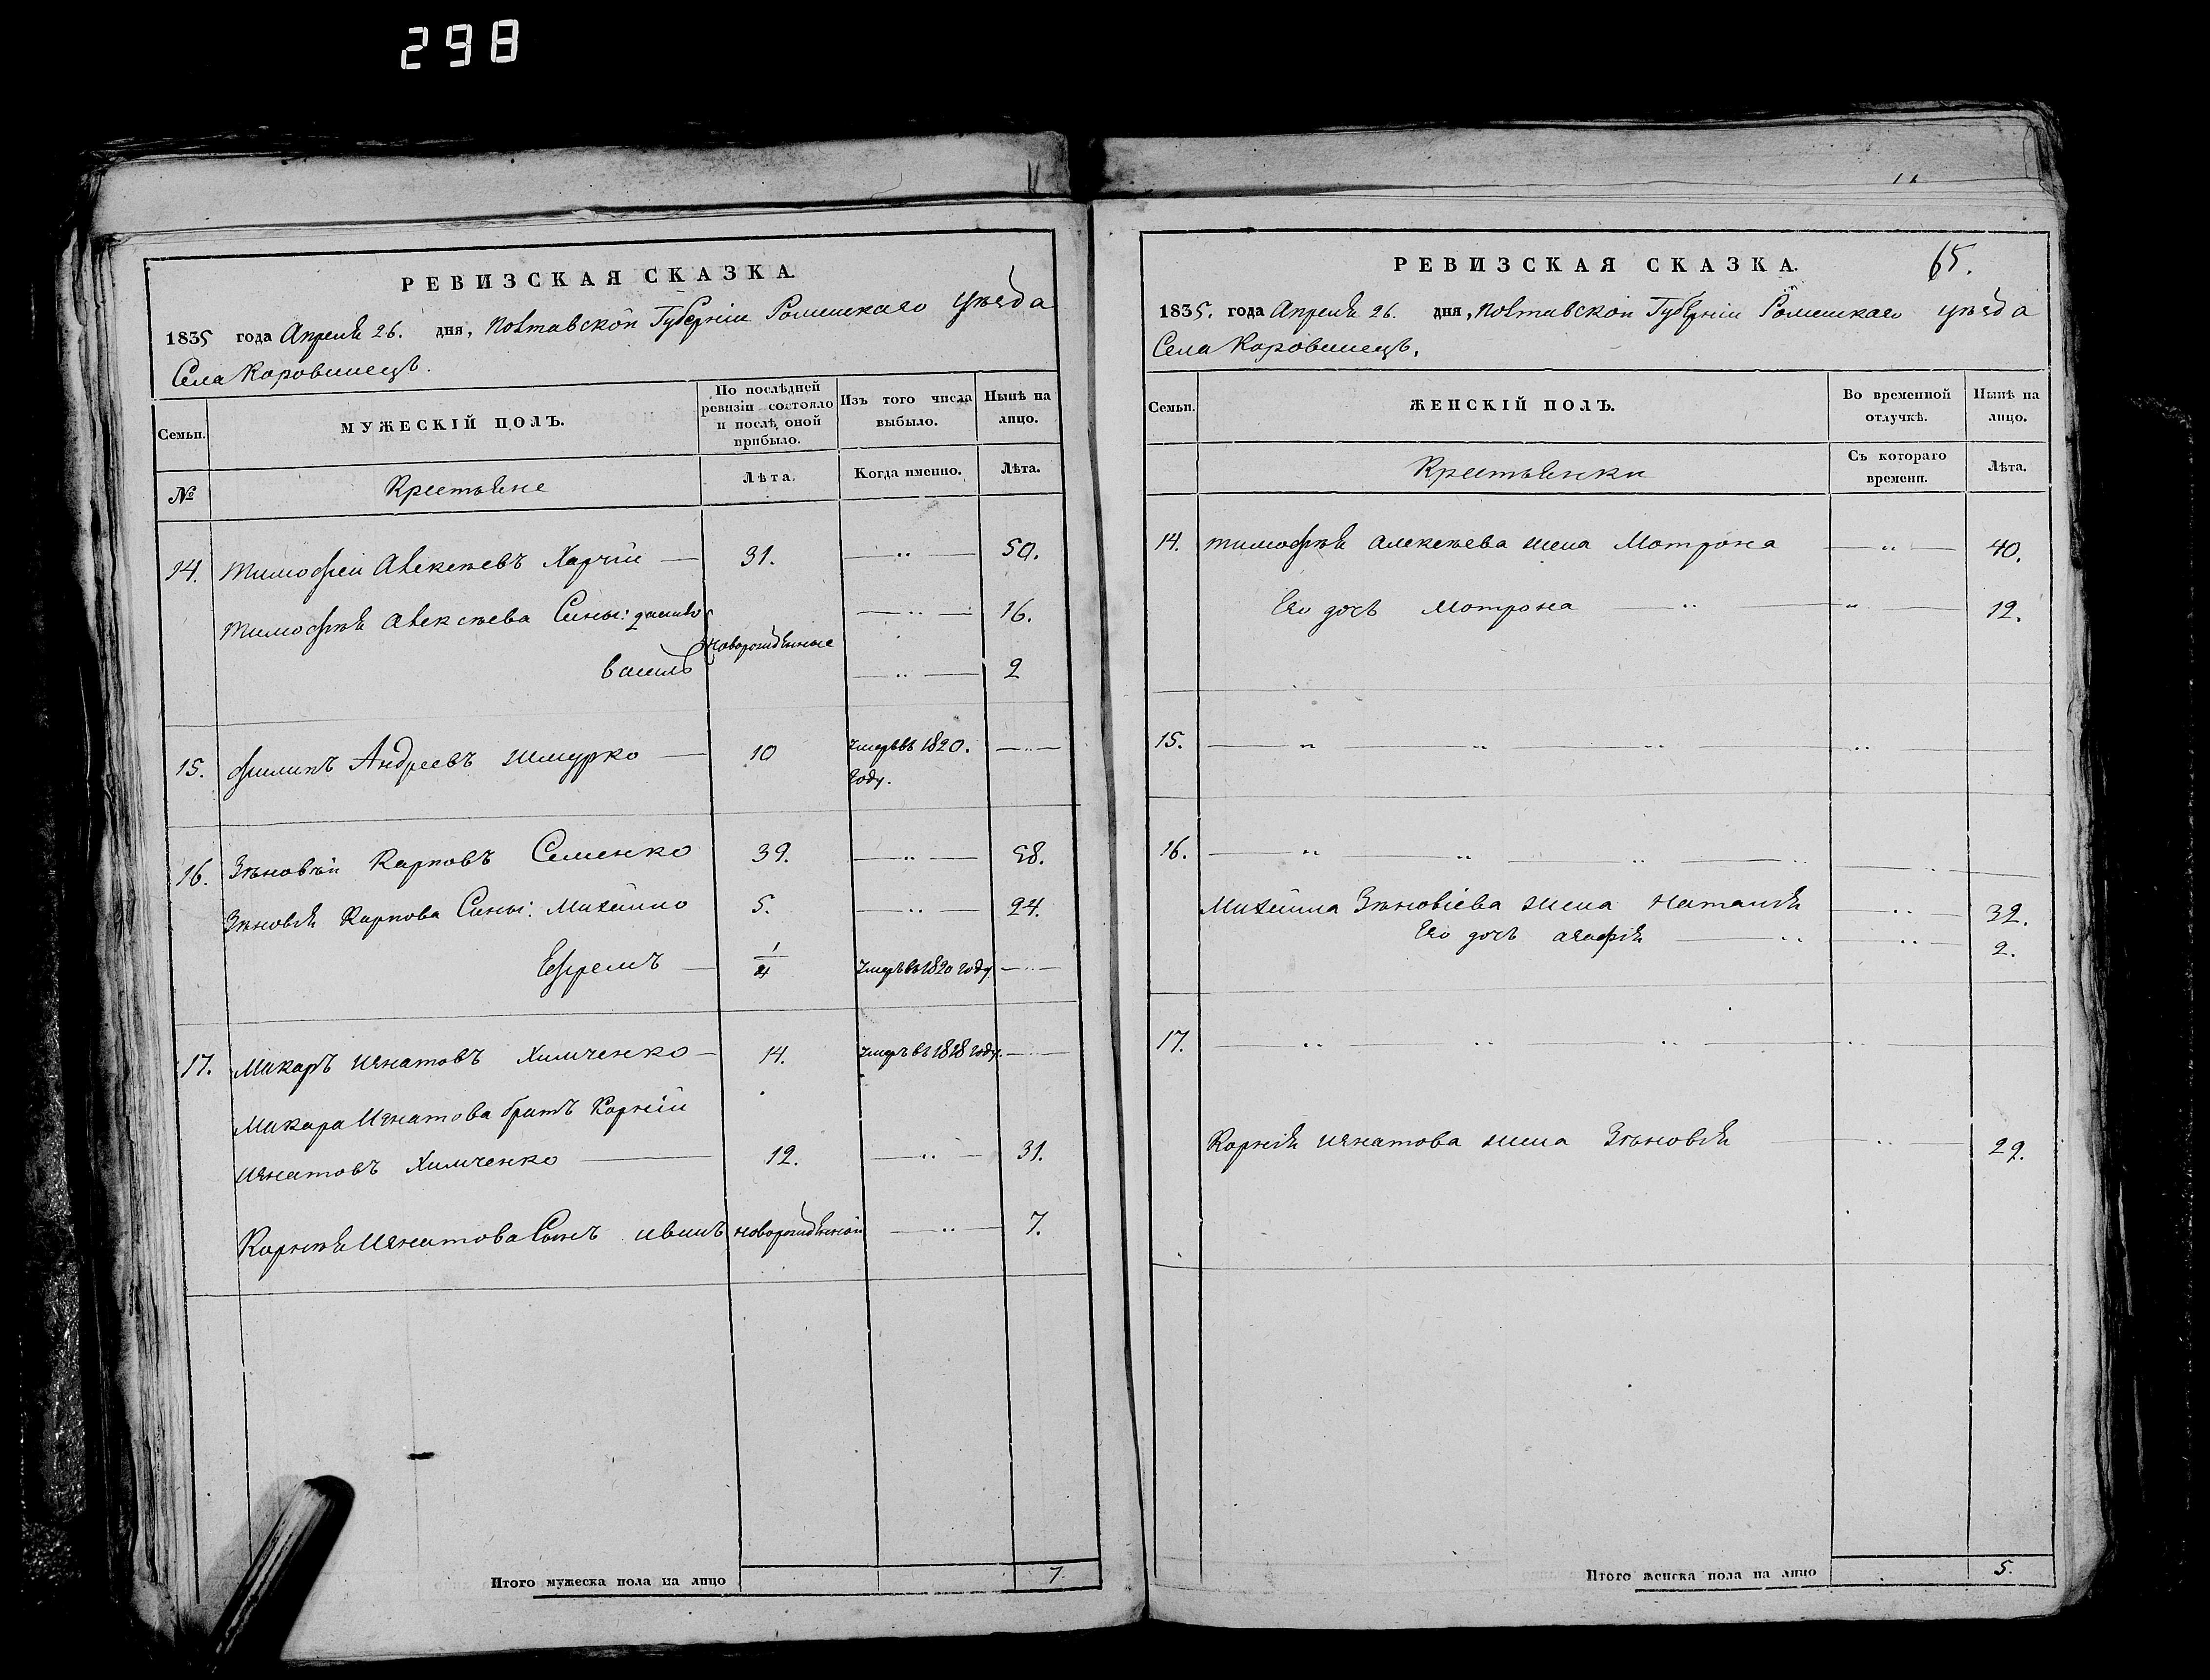 298
РЕВИЗСКАЯ СКАЗКА.
1835 года Апреля 26. дня, Полтавской Губерніи Роменскаго уѣзда
Села Коровинецъ.
Семьи.
МУЖЕСКІЙ ПОЛЪ.
По послѣдней ревизіи состояло и послѣ оной прибыло.
Изъ того числа выбыло.
Нынѣ на лицо.
№
Крестьяне
Лѣта.
Когда именно.
Лѣта.
14. Тимофей Алексѣевъ Харчій — 31. — „ — 50.
Тимофѣя Алексѣева Сины: — „ — 16.
новорожденные
Василь — „ — 2
15. Филипъ Андреевъ Шмурко — 10 умеръ въ 1820. — „ —
году.
16. Зѣновѣй Карповъ Семенко 39. — „ — 58.
Зѣновія Карпова Сины: Михайло 5. — „ — 24.
Ефремъ — 1/4 умеръ въ 1820 году — „ —
17. Макаръ Игнатовъ Химченко — 14. умеръ въ 1818 году. — „ —
Макара Игнатова братъ Корній
Игнатовъ Химченко — 12. — „ — 31.
Корнѣя Игнатова Сынъ иванъ новорожденной — „ — 7.
Итого мужеска пола на лицо 7.
РЕВИЗСКАЯ СКАЗКА.
65.
1835. года Апреля 26. дня, Полтавской Губерніи Роменскаго уѣзда
Села Коровинецъ.
Семьи.
ЖЕНСКІЙ ПОЛЪ.
Во временной отлучкѣ.
Нынѣ на лицо.
Крестьянки
Съ котораго времени.
Лѣта.
14. Тимофѣя Алексѣева жена Мотрона — „ — 40.
Его дочь Мотрона — „ — „ — 12.
15. — „ — „ — „ — „ —
16. — „ — „ — „ — „ — „ —
Михайла Зѣновіева жена Наталія — „ — 32.
Его дочь агафія — „ — „ — 2.
17. — „ — „ — „ — „ — „ —
Корнія Игнатова жена Зѣновія — „ — 29.
Итого женска пола на лицо 5.